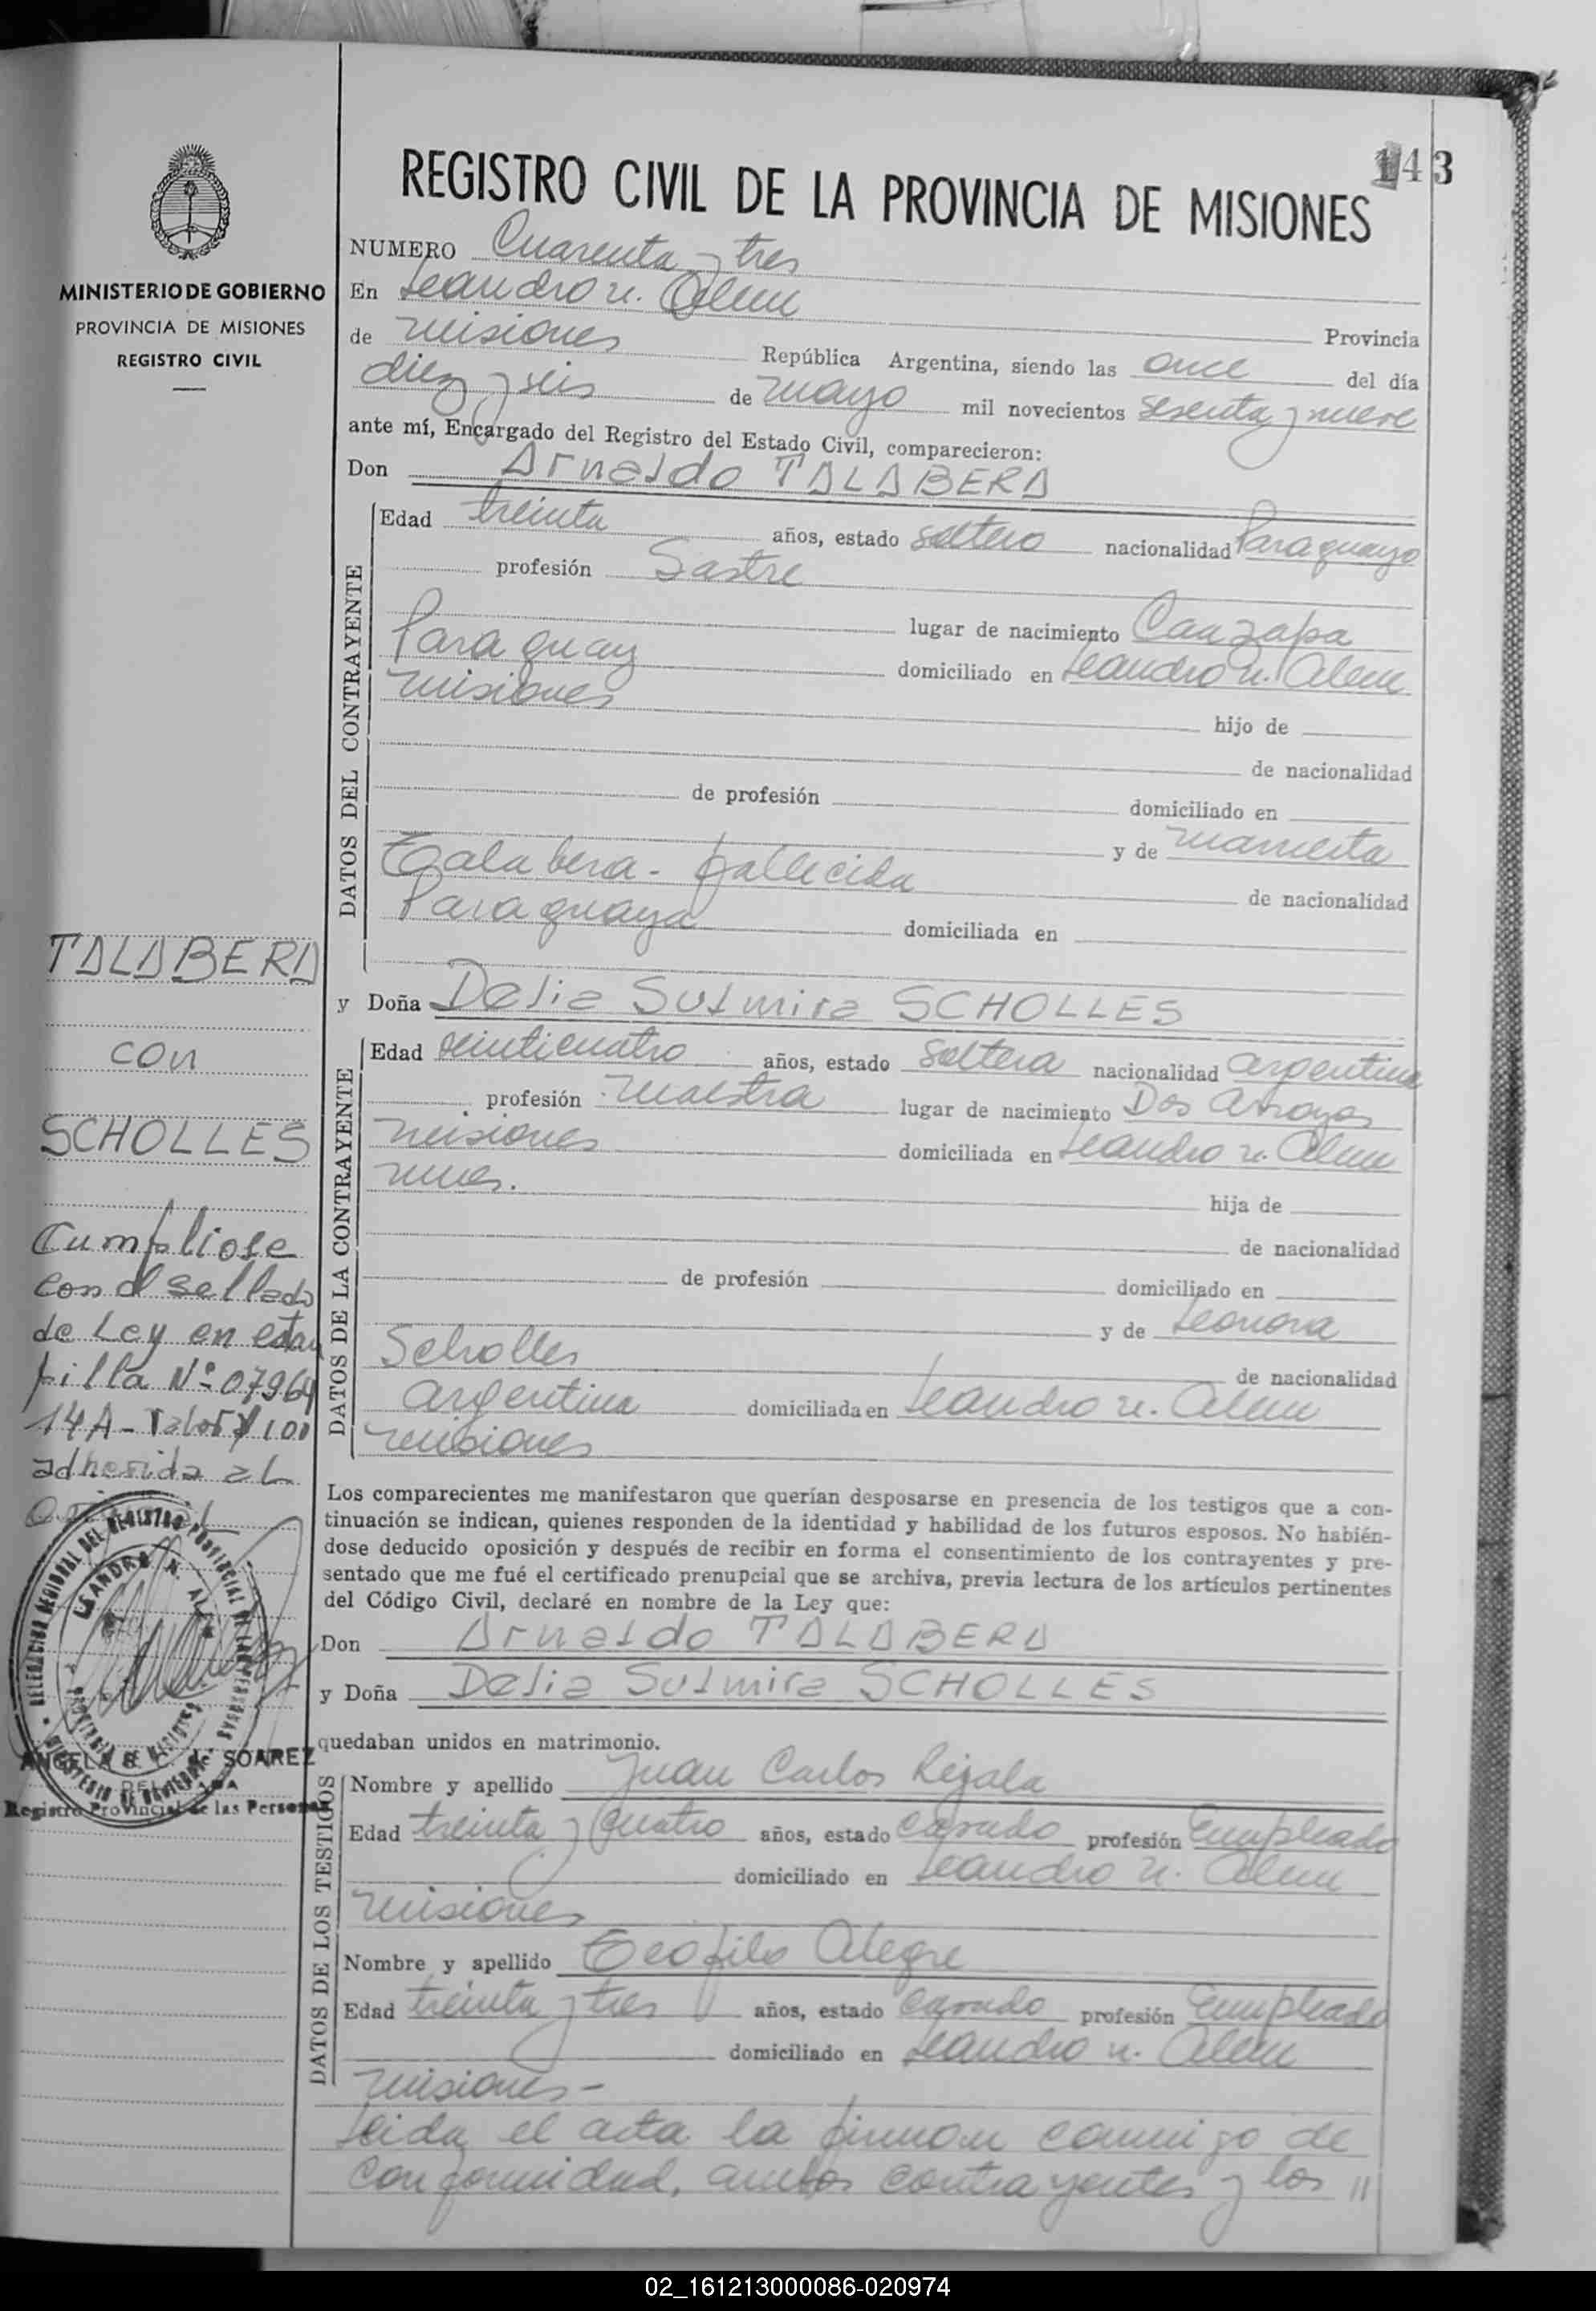 143
REGISTRO CIVIL DE LA PROVINCIA DE MISIONES
MINISTERIO DE GOBIERNO
PROVINCIA DE MISIONES
REGISTRO CIVIL
NUMERO Cuarenta y tres
En Leandro N. Alem
Provincia
de Misiones República Argentina, siendo las once del día
diez y seis de mayo mil novecientos sesenta y nueve
ante mí, Encargado del Registro del Estado Civil, comparecieron:
Don Arnaldo TALABERA
DATOS DEL CONTRAYENTE
Edad treinta años, estado soltero nacionalidad Paraguayo
profesión Sastre
lugar de nacimiento Caazapa
Paraguay domiciliado en Leandro N. Alem
Misiones hijo de
de nacionalidad
de profesión domiciliado en
y de Mamerta
Talabera - fallecida de nacionalidad
Paraguaya domiciliada en
TALABERA
con
SCHOLLES
y Doña Delia Sulmira SCHOLLES
DATOS DE LA CONTRAYENTE
Edad veinticuatro años, estado soltera nacionalidad argentina
profesión maestra lugar de nacimiento Dos Arroyos
Misiones domiciliada en Leandro N. Alem
Mnes. hija de
de nacionalidad
de profesión domiciliado en
y de Leonora
Scholles de nacionalidad
argentina domiciliada en Leandro N. Alem
Misiones
Cumpliose
con el sellado
de Ley en estam
pilla Nº 07964
14A - Valor $ 100
adherida al
Los comparecientes me manifestaron que querían desposarse en presencia de los testigos que a con-
tinuación se indican, quienes responden de la identidad y habilidad de los futuros esposos. No habién-
dose deducido oposición y después de recibir en forma el consentimiento de los contrayentes y pre-
sentado que me fué el certificado prenupcial que se archiva, previa lectura de los artículos pertinentes
del Código Civil, declaré en nombre de la Ley que:
Don Arnaldo TALABERA
y Doña Delia Sulmira SCHOLLES
quedaban unidos en matrimonio.
DELEGACION REGIONAL DEL REGISTRO PROVINCIAL DE LAS PERSONAS
LEANDRO N. ALEM
PROVINCIA DE MISIONES
MINISTERIO DE GOBIERNO
ANGELA B. C. de SOAREZ
DELEGADA
Registro Provincial de las Personas
DATOS DE LOS TESTIGOS
Nombre y apellido Juan Carlos Rejala
Edad treinta y cuatro años, estado casado profesión Empleado
domiciliado en Leandro N. Alem
Misiones
Nombre y apellido Teofilo Alegre
Edad treinta y tres años, estado casado profesión Empleado
domiciliado en Leandro N. Alem
Misiones -
Leida el acta la firman conmigo de
conformidad, ambos contrayentes y los //
02_161213000086-020974